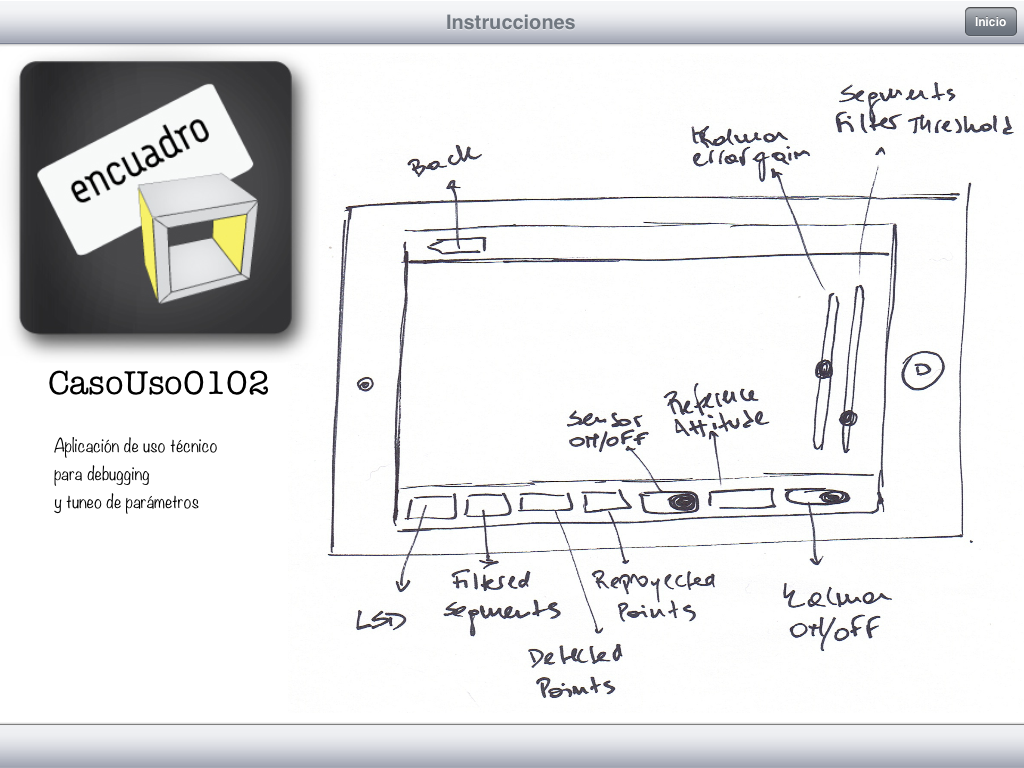 Instrucciones
Inicio
encuadro
CasoUso0102
Aplicación de uso técnico
para debugging
y tuneo de parámetros
Back
Kalman
error gain
Segments
Filter Threshold
Sensor
ON/OFF
Reference
Attitude
LSD
Filtered
Segments
Detected
Points
Reproyected
Points
Kalman
ON/OFF